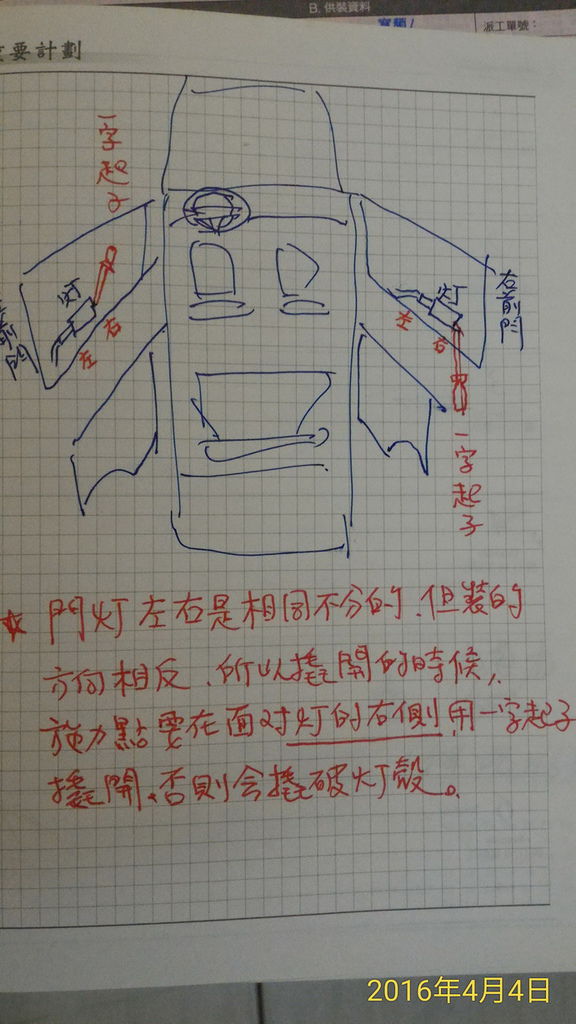 B. 供裝資料
派工單號：
要計劃
一字起子
灯
左
右
左前門
灯
左
右
右前門
一字起子
門灯左右是相同不分的、但裝的
方向相反、所以撬開的時候,、
施力點要在面对灯的右側用一字起子
撬開、否則会撬破灯殼。
2016年4月4日